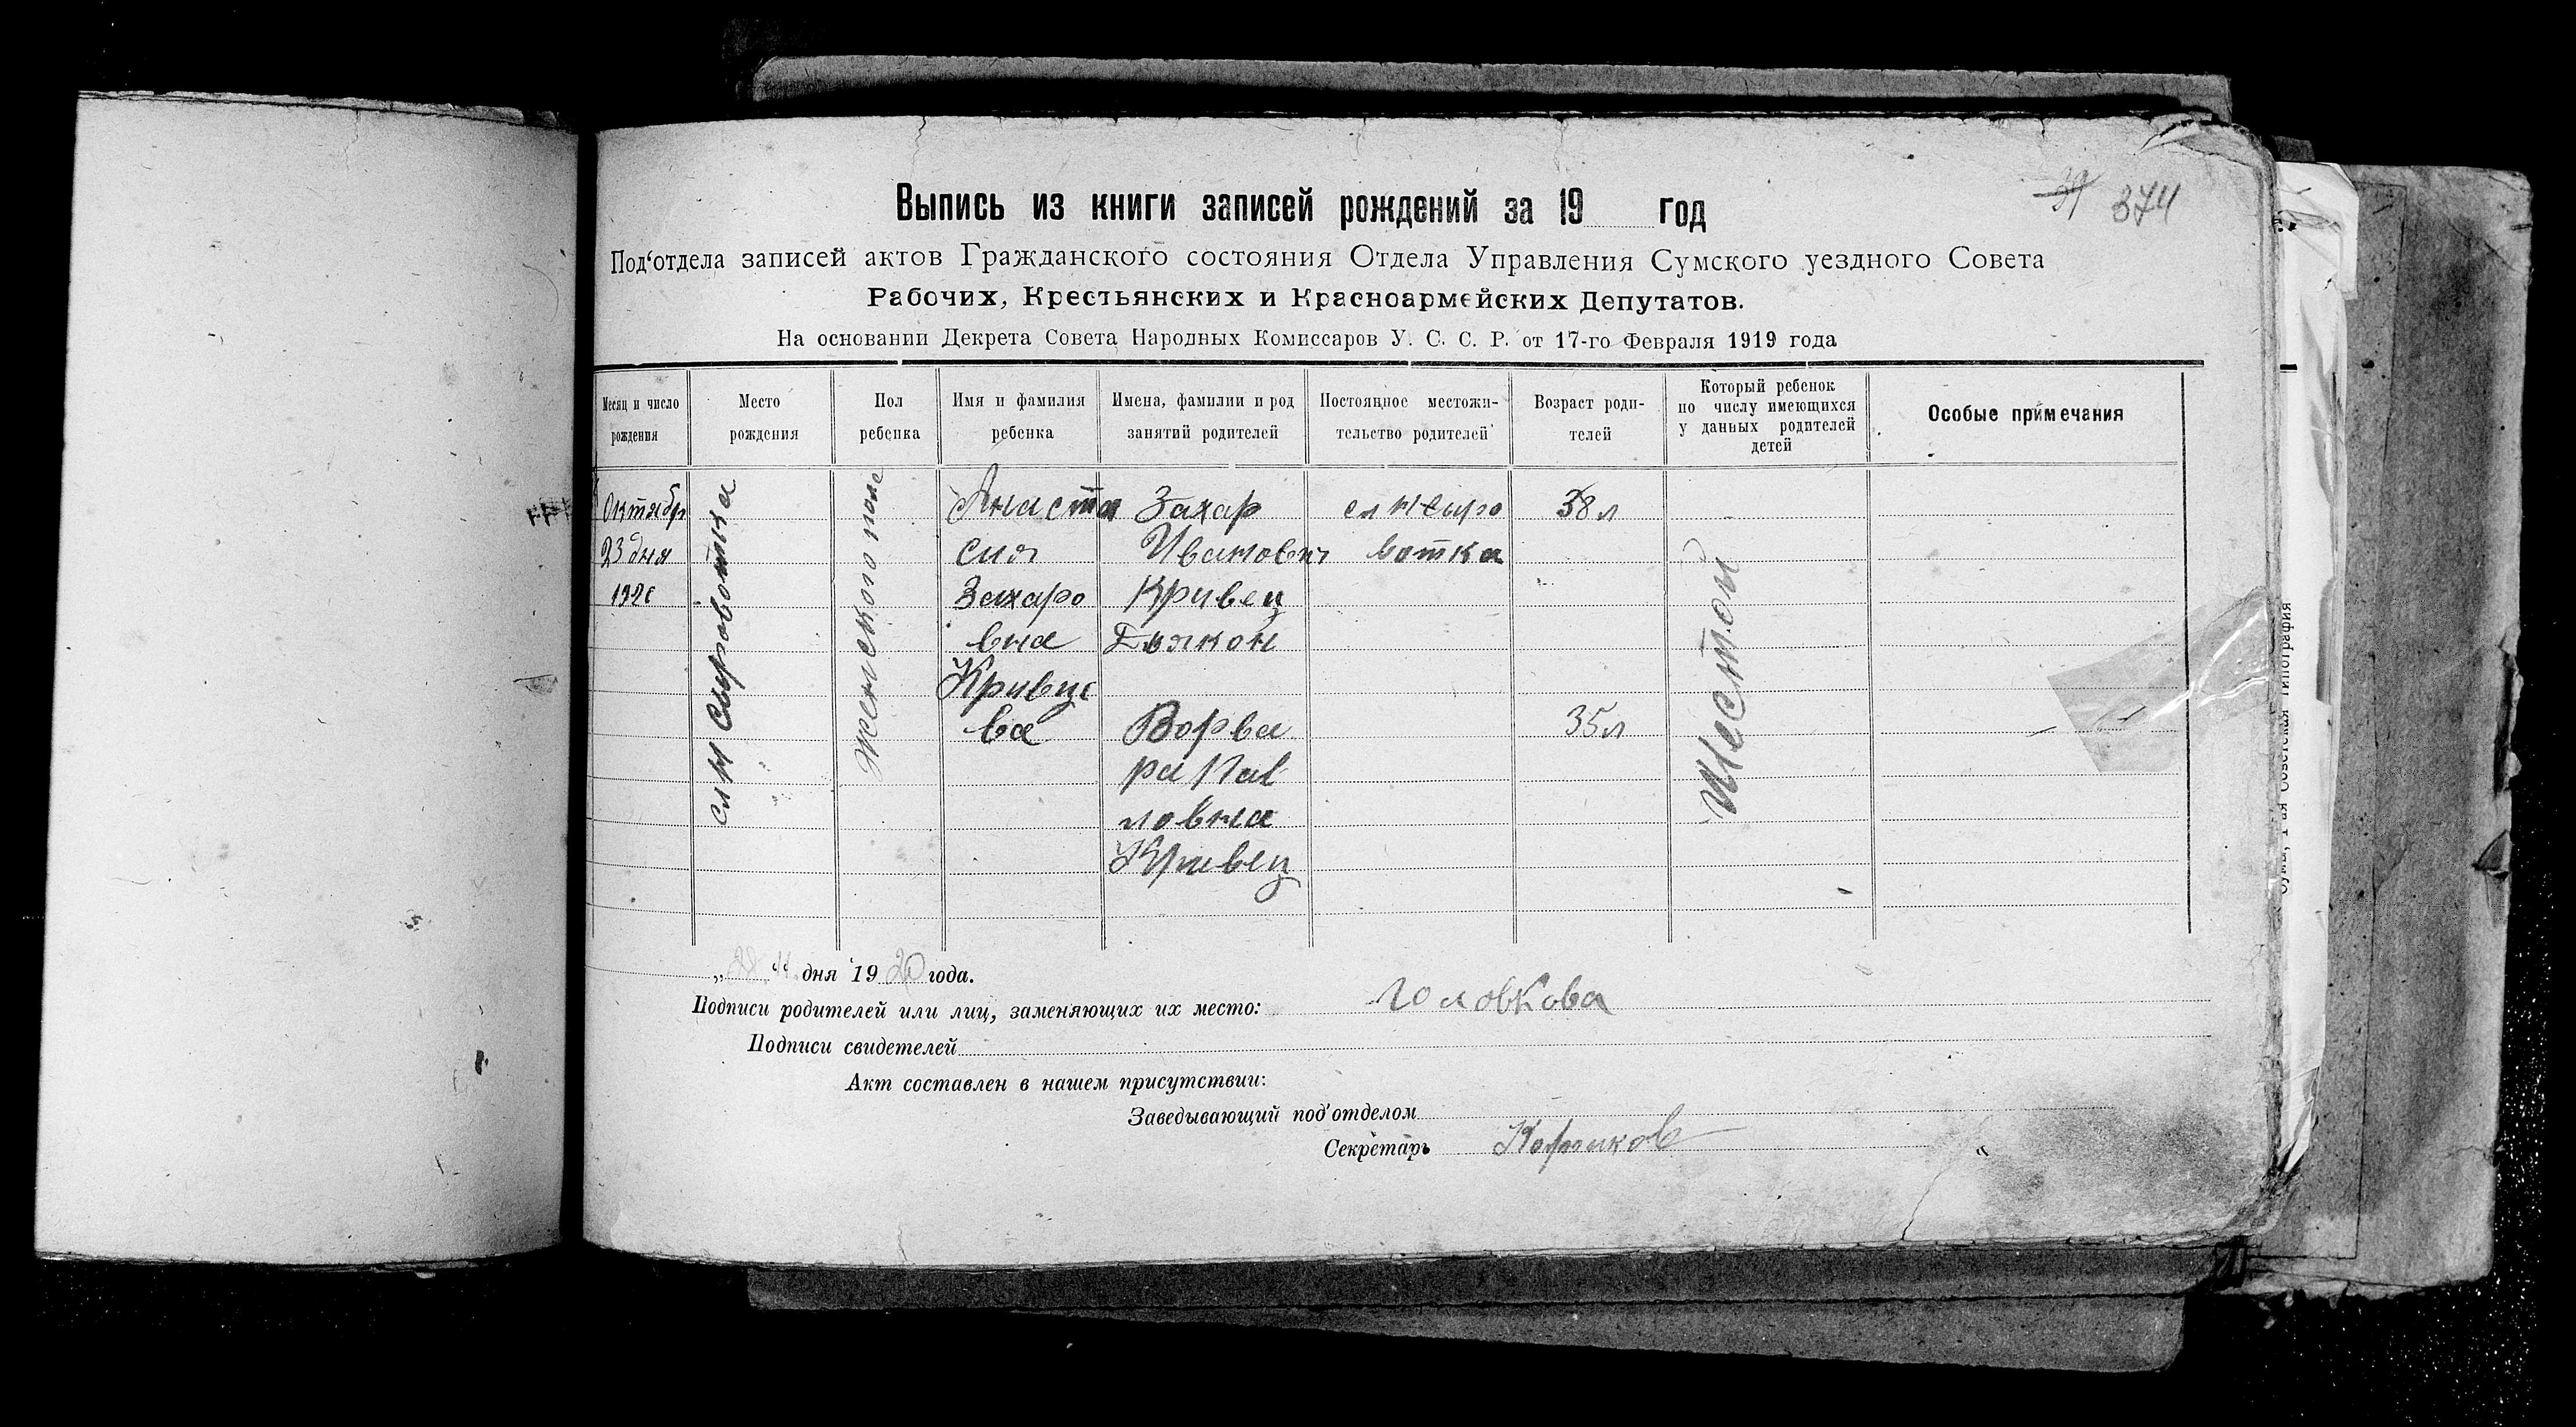 39 374
Выпись из книги записей рождений за 19 год
Под'отдела записей актов Гражданского состояния Отдела Управления Сумского уездного Совета
Рабочих, Крестьянских и Красноармейских Депутатов.
На основании Декрета Совета Народных Комиссаров У. С. С. Р. от 17-го Февраля 1919 года
Месяц и число рождения
Место рождения
Пол ребенка
Имя и фамилия ребенка
Имена, фамилии и род занятий родителей
Постоянное местожи-
тельство родителей
Возраст роди-
телей
Который ребенок
по числу имеющихся
у данных родителей
детей
Особые примечания
Октябр
23 дня
1920
сл Н Сыроватка
Женского пола
Анаста
сия
Захаро
вна
Кривце
ва
Захар
Иванович
Кривец
Дьякон
Ворва
ра Пав
ловна
Кривец
сл Н Сыро
ватка
38 л
35 л
Шестой
„ 11 “ дня 1920 года.
Подписи родителей или лиц, заменяющих их место: Головкова
Подписи свидетелей
Акт составлен в нашем присутствии:
Заведывающий под'отделом
Секретарь
Сумы, 1-ая Советская типография